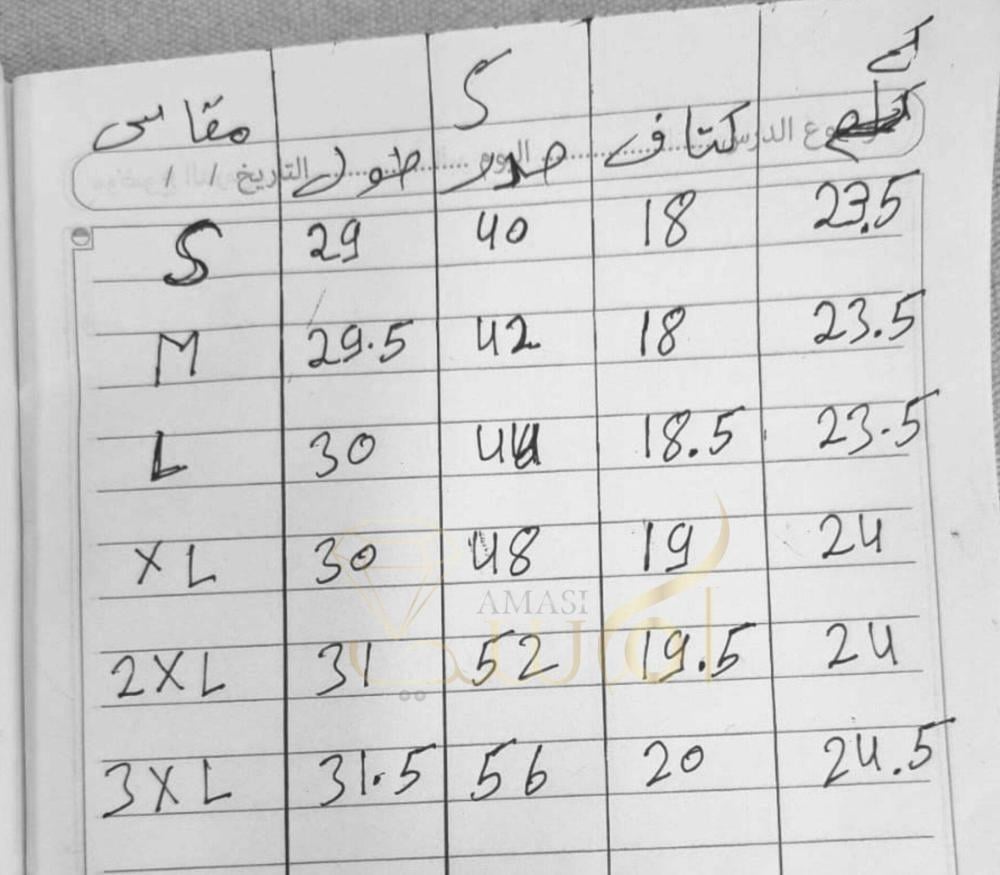 S
كم
مقاس طول صدر كتاف
وع الدرس .......... اليوم .......... التاريخ / /
S 29 40 18 23.5
M 29.5 42 18 23.5
L 30 44 18.5 23.5
XL 30 48 19 24
AMASI
2XL 31 52 19.5 24
3XL 31.5 56 20 24.5